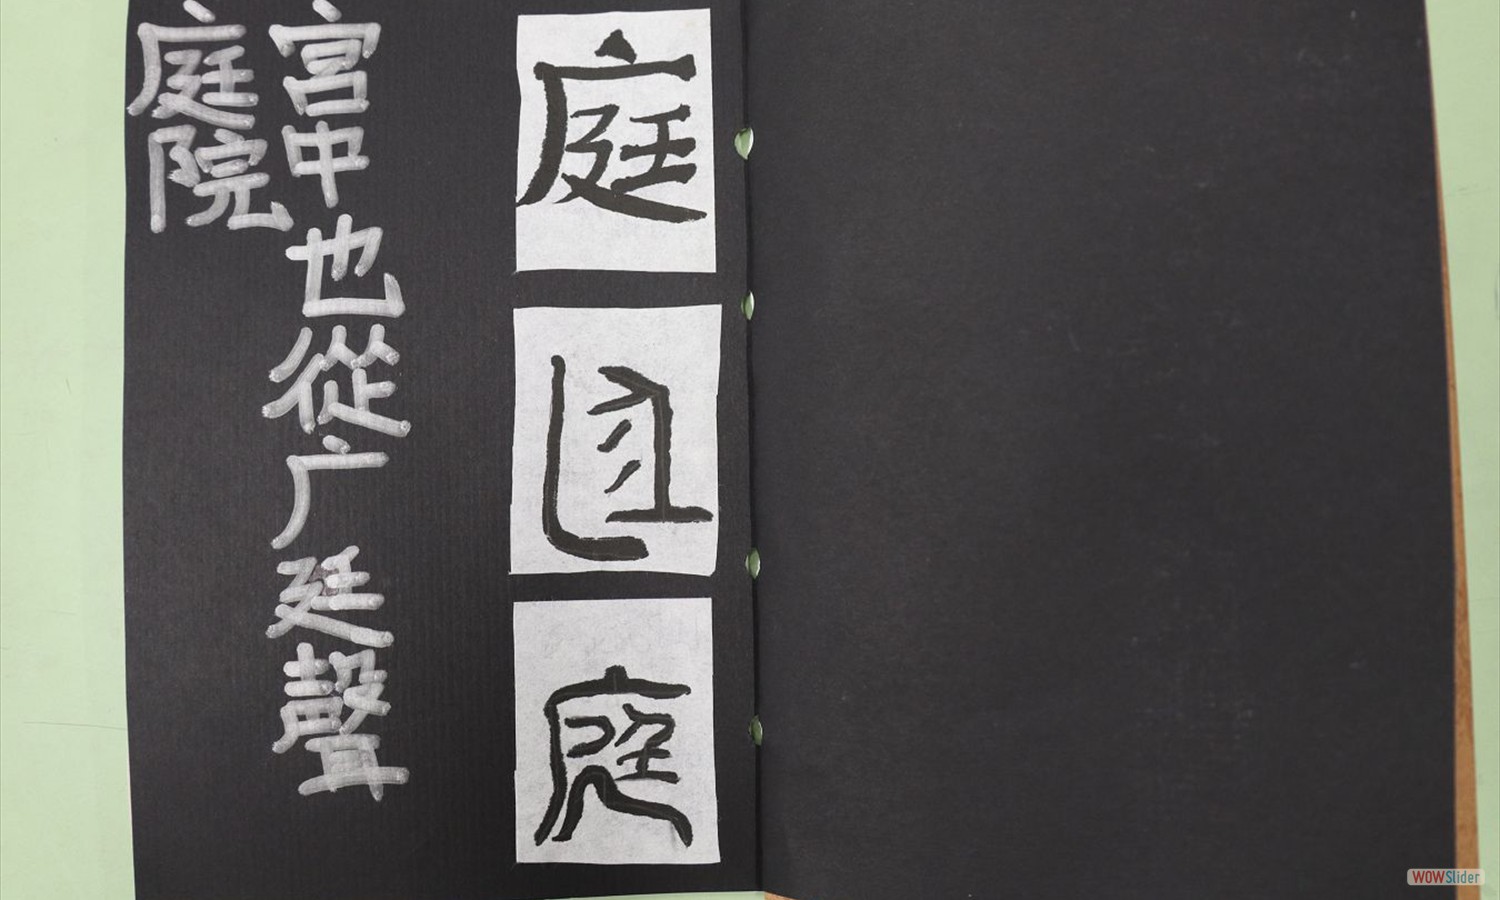 庭
庭
庭
宮中也從广廷聲
庭院
WOWSlider